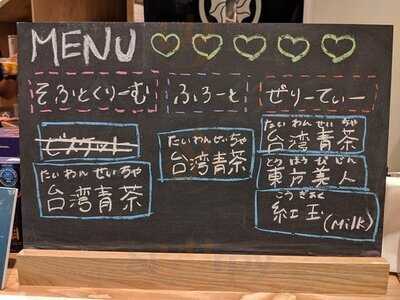 MENU
そふとくりーむり
ふろーと
ぜりーてぃー
ビスケット
たいわん せいちゃ
台湾青茶
たいわんせいちゃ
台湾青茶
たいわん せいちゃ
台湾青茶
とうほう びじん
東方美人
こうぎょく
紅玉(Milk)